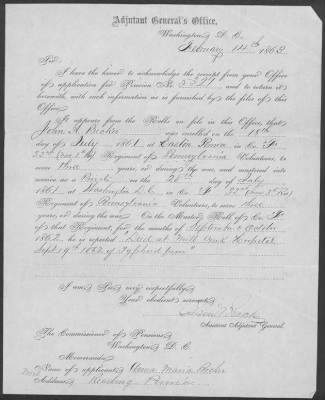 Adjutant General's Office,
Washington, D. C.
February 14th 1863.
Sir:
I have the honor to acknowledge the receipt from your Office
of application for Pension No. 5391, and to return it
herewith, with such information as is furnished by the files of this
Office.
It appears from the Rolls on file in this Office, that
John A. was enrolled on the 18th
day of July, 1861 at Easton Penna in Co.
Regiment of Pennsylvania Volunteers, to
serve three years, or during the war, and mustered into
service as a Priv. on the 28th day of July
1861, at Washington D.C., in Co.
Regiment of Pennsylvania Volunteers, to serve three
years, or during the war. On the Muster Roll of Co.
of that Regiment, for the months of September & October
1862, he is reported "Died at Hospital
Sept 19th 1862 of Typhoid fever"
I am, Sir, very respectfully,
Your obedient servant,
Assistant Adjutant General.
The Commissioner of Pensions,
Washington, D. C.
Memoranda:
Name of applicant, Anna Maria
Address, Reading Penna